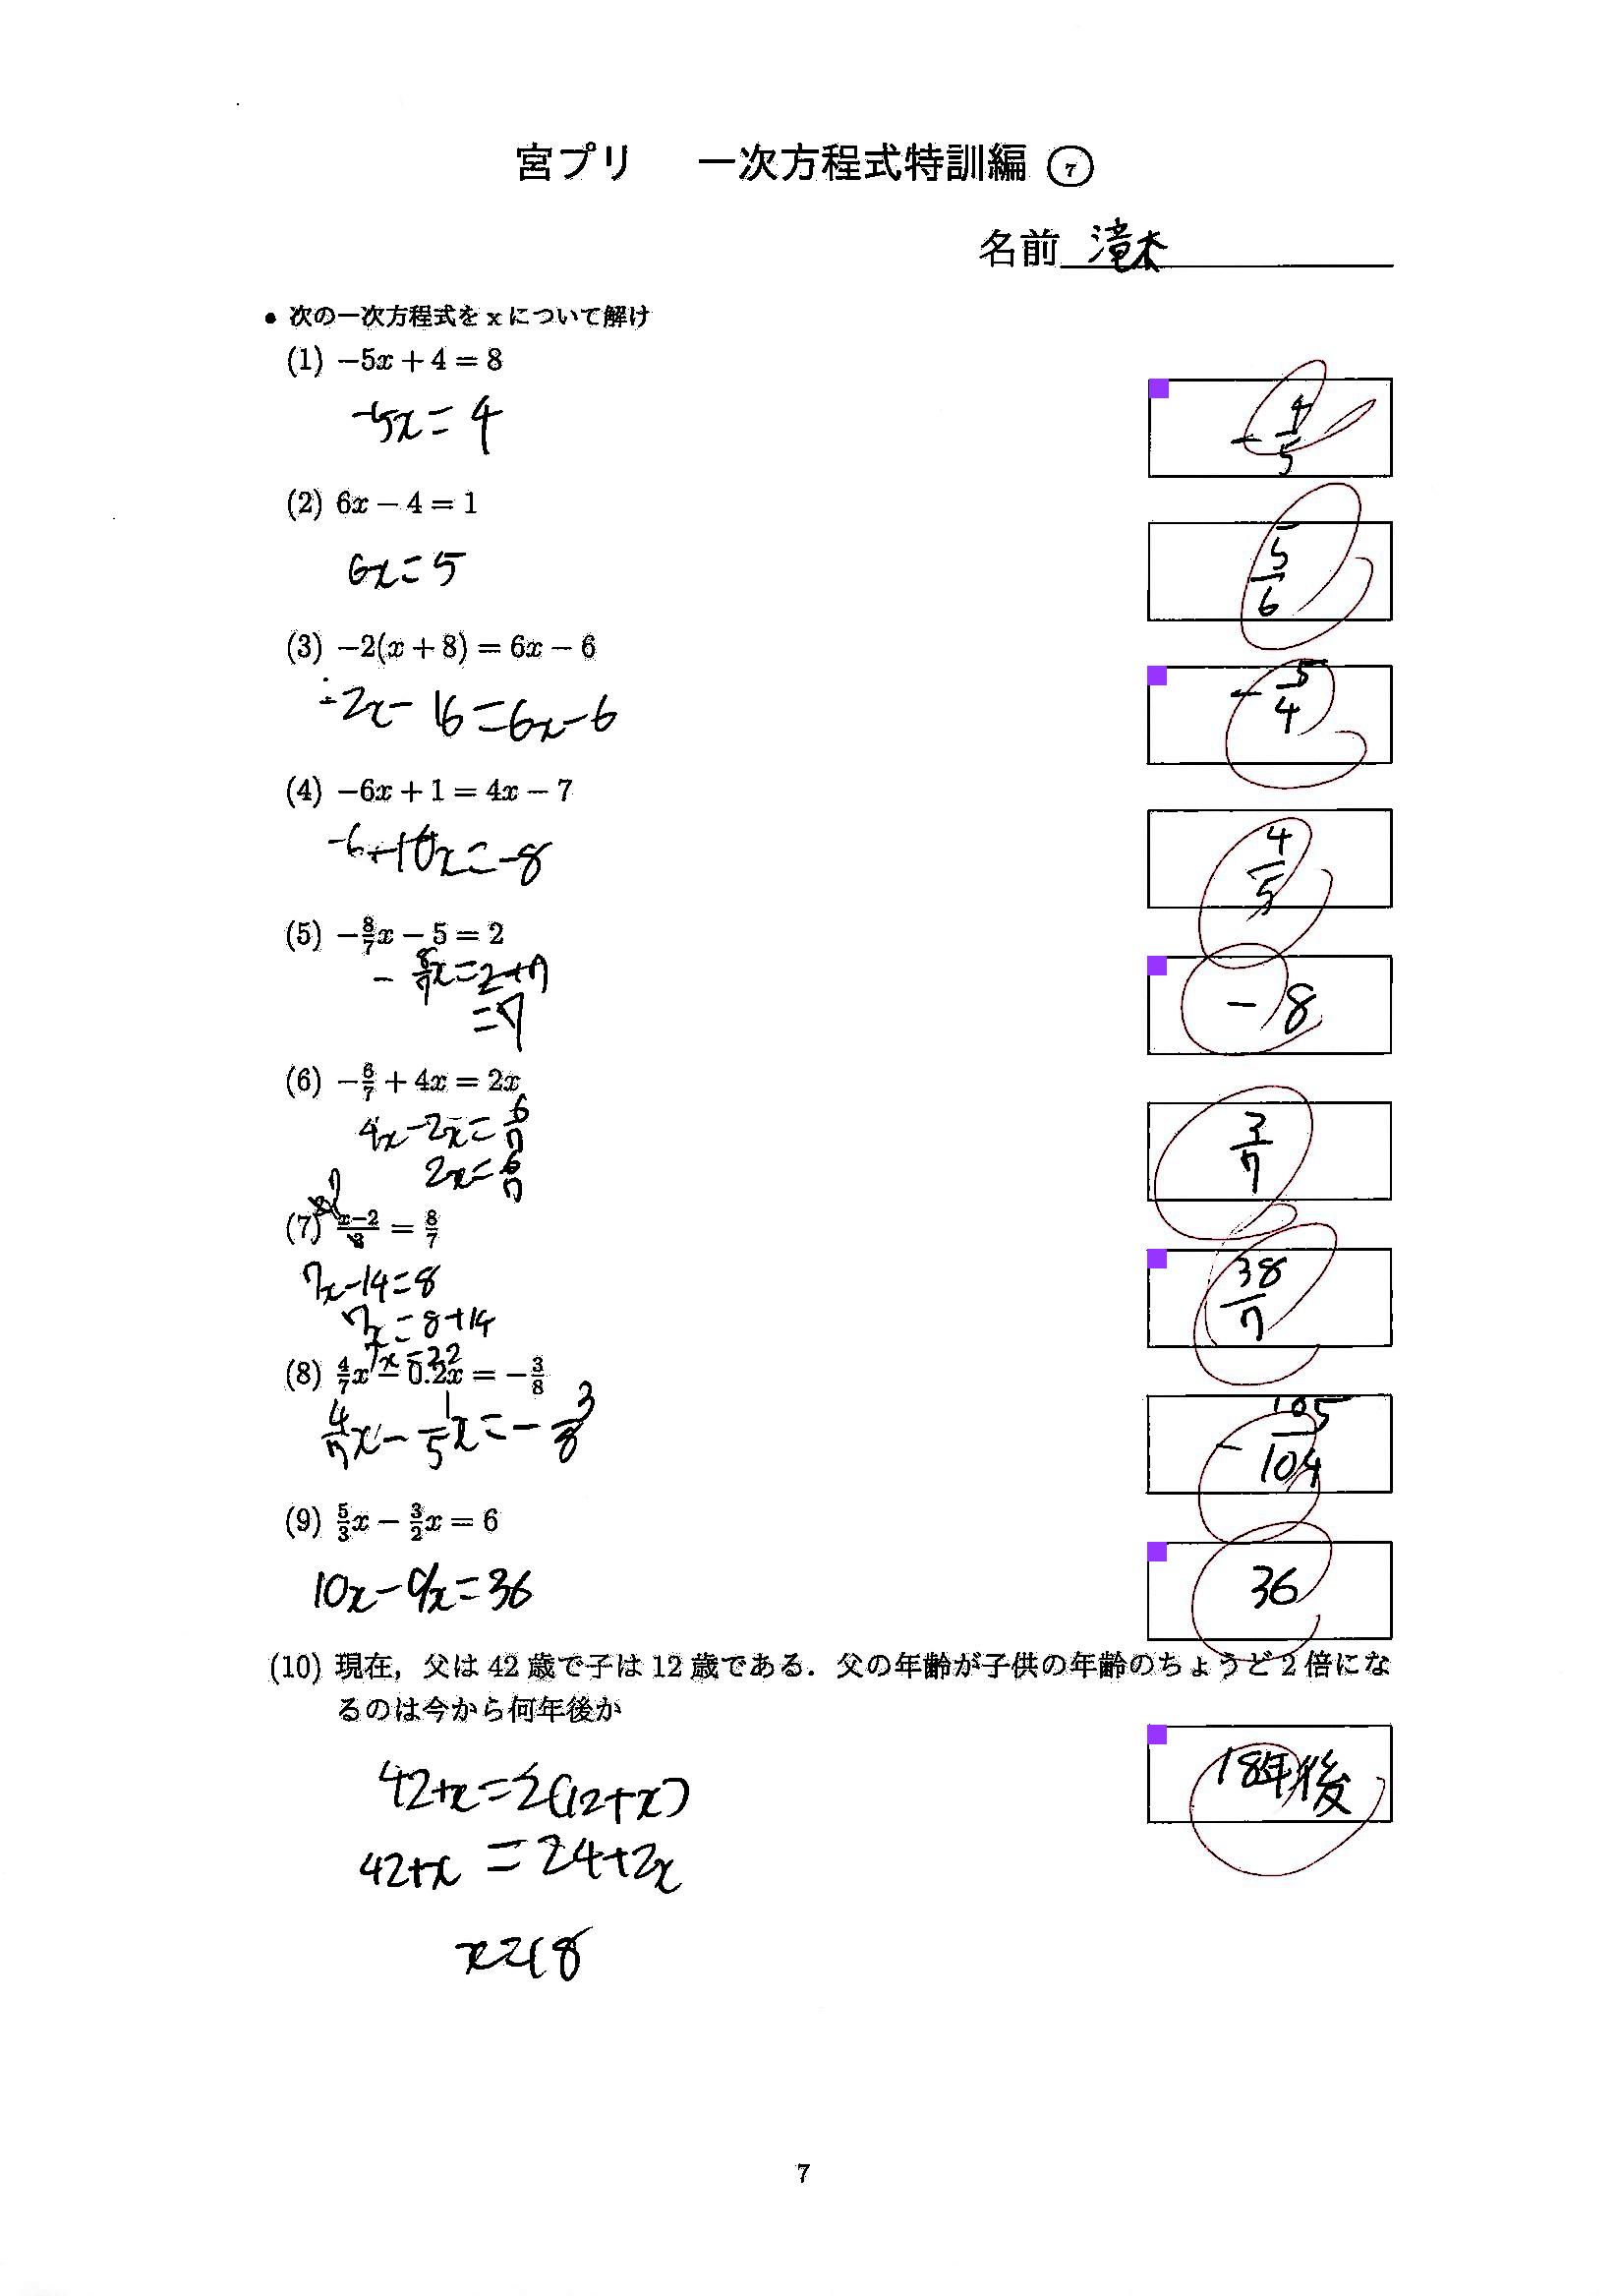 宮プリ 一次方程式特訓編 ⑦
名前 滝本
• 次の一次方程式を x について解け
(1) −5x + 4 = 8
-5x = 4
-4/5
(2) 6x − 4 = 1
6x = 5
5/6
(3) −2(x + 8) = 6x − 6
-2x - 16 = 6x - 6
-5/4
(4) −6x + 1 = 4x − 7
x = -8
4/5
(5) −8/7x − 5 = 2
- 8/7x = 2+
= 7
-8
(6) −6/7 + 4x = 2x
4x - 2x = 6/7
2x = 6/7
3/7
(7) x−2/3 = 8/7
7x - 14 = 8
7x = 8 + 14
7x = 22
38/7
(8) 4/7x − 0.2x = −3/8
4/7x - 1/5x = - 3/8
-105/104
(9) 5/3x − 3/2x = 6
10x - 9x = 36
36
(10) 現在，父は 42 歳で子は 12 歳である．父の年齢が子供の年齢のちょうど 2 倍にな
るのは今から何年後か
18年後
42+x = 2(12+x)
42+x = 24+2x
x = 18
7